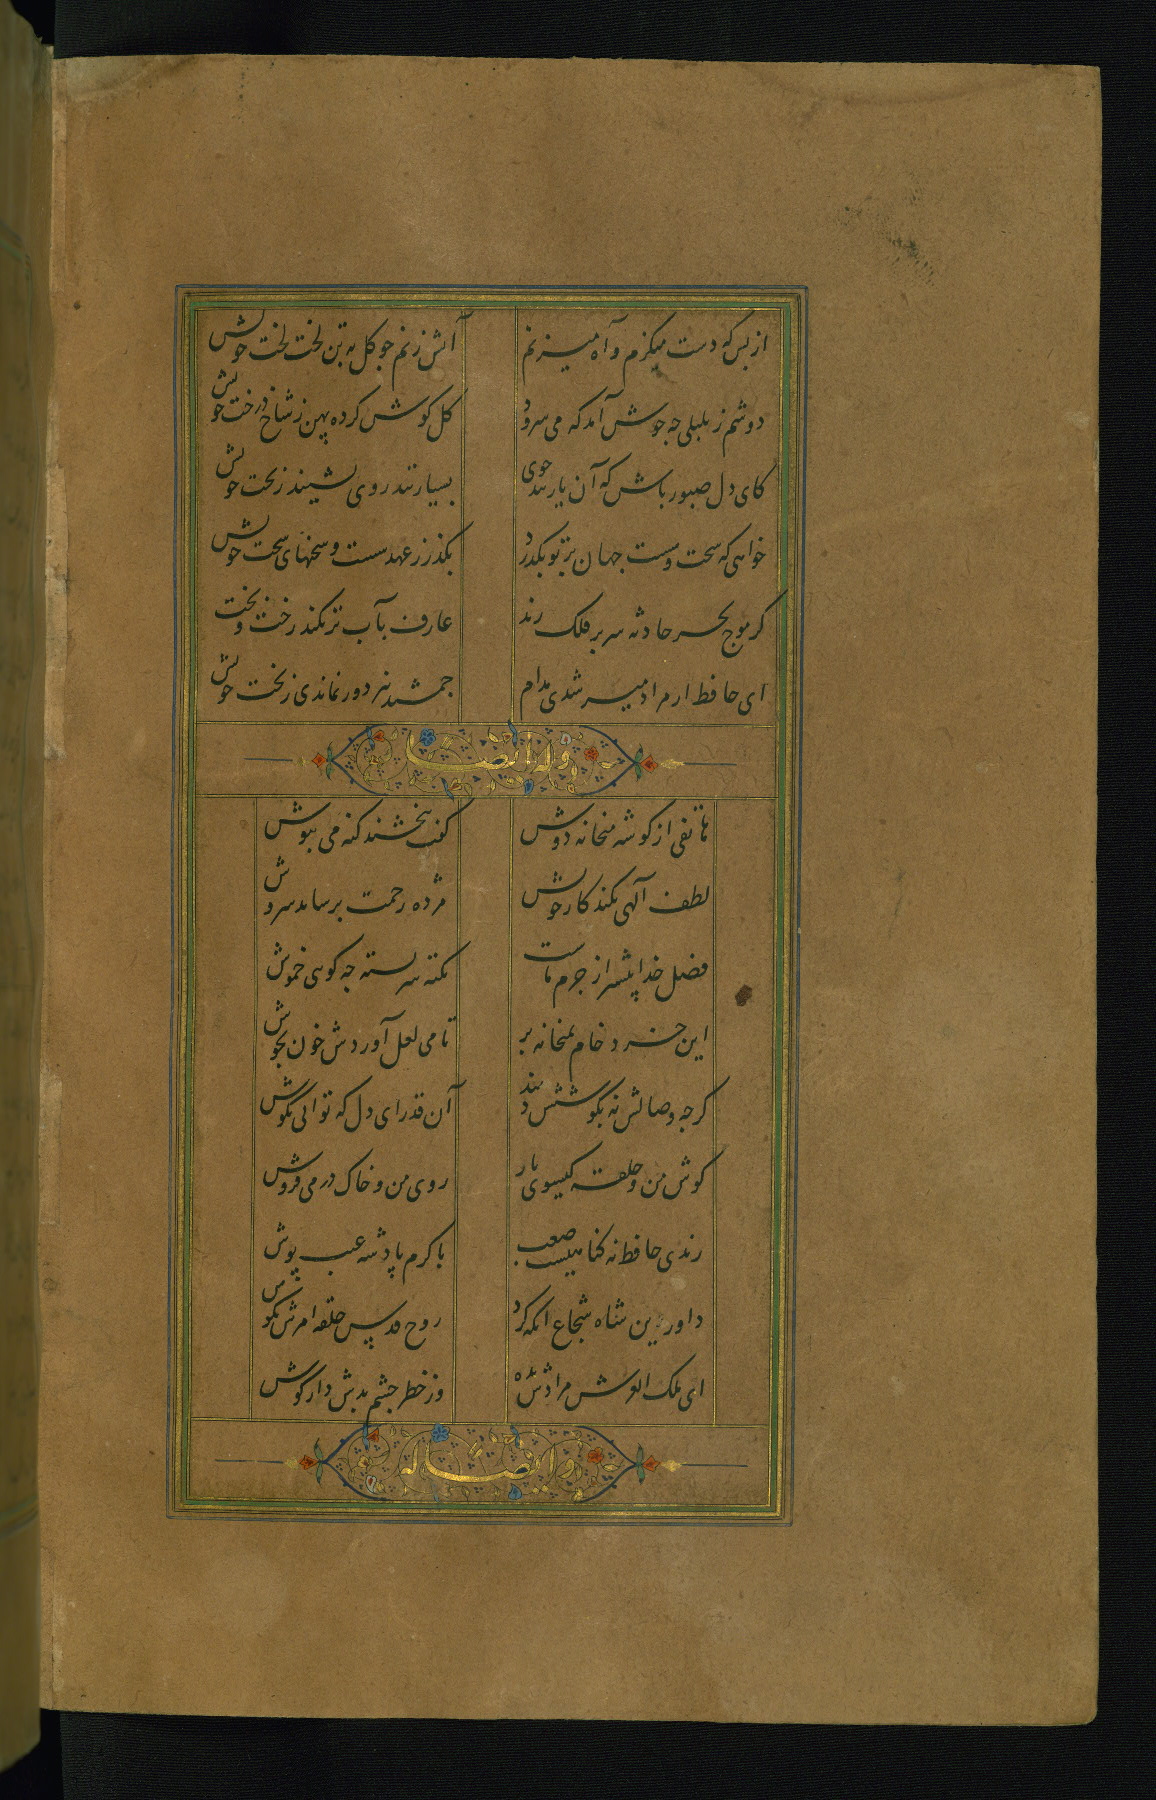 از بس که دست میکزم و آه میزنم آتش زنم جو کل به تن لخت لخت خویش
دوشم ز بلبلی جه خوش آمد که می سرود کل کوش کرده پهن ز شاخ درخت خویش
کای دل صبور باش که آن یار تند خوی بسیار تند روی نشیند ز بخت خویش
خواهی که سخت و سست جهان بر تو بکذرد بکذر ز عهد سست و سخنهای سخت خویش
کر موج بحر حادثه سر بر فلک زند عارف بآب تر نکند رخت و بخت خویش
ای حافظ ار مراد میسر شدی مدام جمشید نیز دور نماندی ز تخت خویش
وله ایضا
هاتفی از کوشه میخانه دوش کفت ببخشند کنه می بنوش
لطف آلهی بکند کار خویش مژده رحمت برساند سروش
فضل خدا بیشتر از جرم ماست نکته سر بسته جه کویی خموش
این خرد خام بمیخانه بر تا می لعل آوردش خون بجوش
کرجه وصالش نه بکوشش دهند آن قدر ای دل که توانی بکوش
کوش من و حلقه کیسوی یار روی من و خاک در می فروش
رندی حافظ نه کناهیست صعب با کرم پادشه عیب پوش
داور دین شاه شجاع انکه کرد روح قدس حلقه امرش بکوش
ای ملک العرش مرادش بده وز خطر جشم بدش دار کوش
وله ایضا